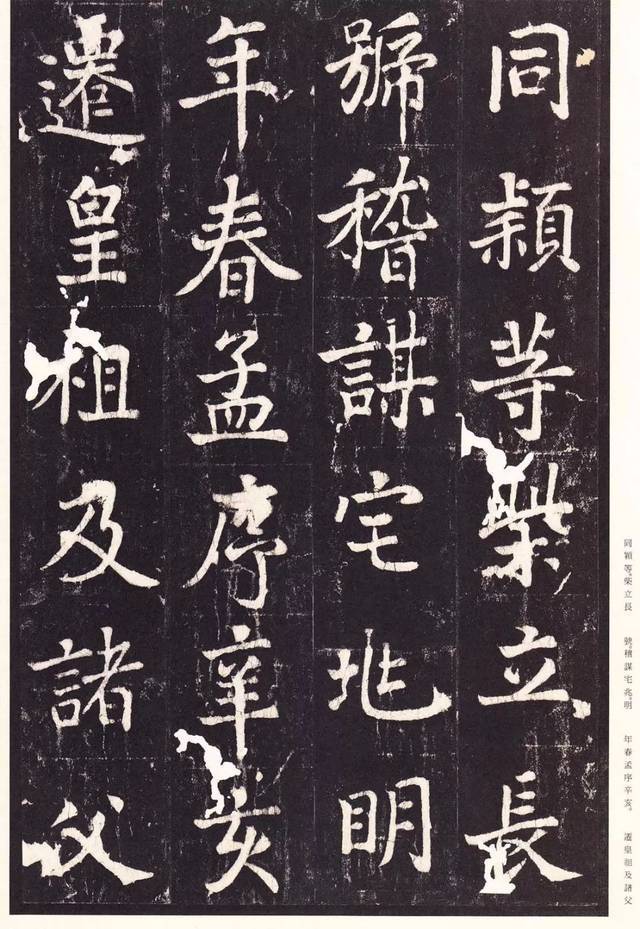 同穎等柴立長
號稽謀宅兆明
年春孟序辛亥
遷皇祖及諸父
同穎等。柴立長　號。稽謀宅兆。明　年春孟序辛亥。　遷皇祖及諸父